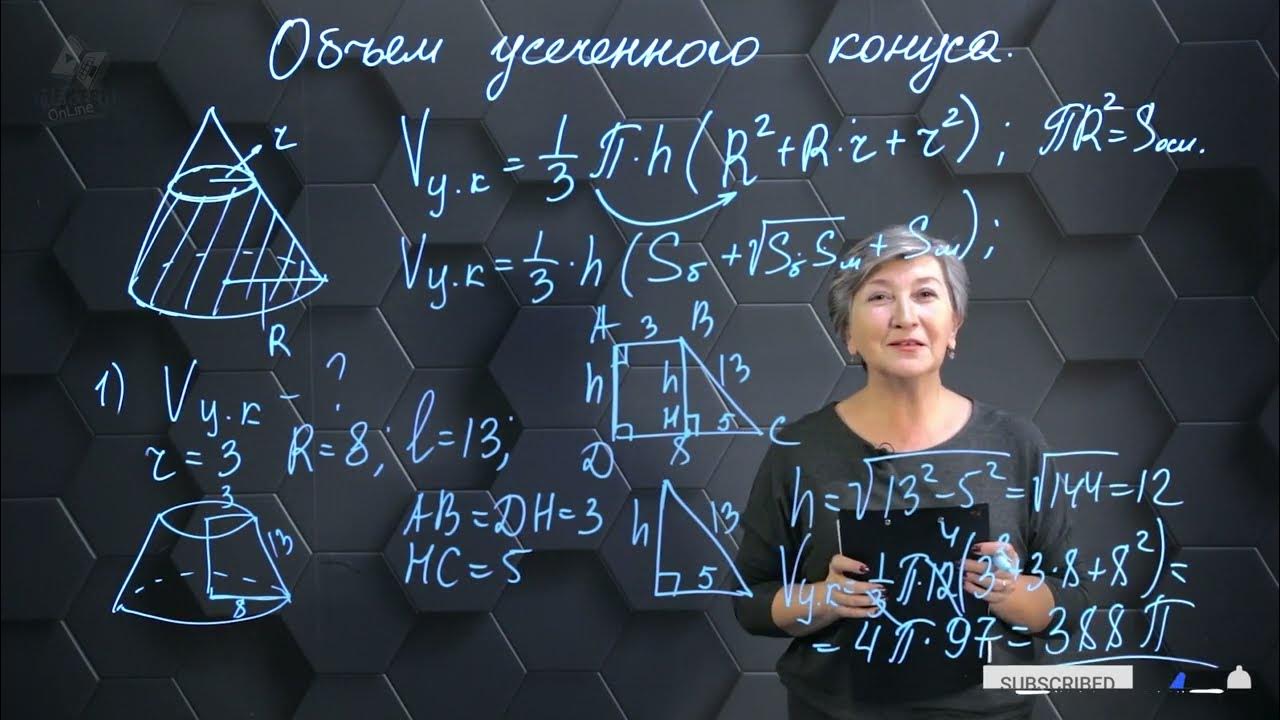 Объем усеченного конуса.
OnLine
r
R
Vу.к = 1/3 π·h (R² + R·r + r²); πR² = Sосн.
Vу.к = 1/3 · h (Sб + √Sб Sм + Sм);
1) Vу.к - ?
r = 3 R = 8; l = 13;
3
13
8
A 3 B
h h 13
D H 5 C
8
AB = DH = 3
HC = 5
h 13
5
h = √13² - 5² = √144 = 12
4
Vу.к = 1/3 π·12 (3² + 3·8 + 8²) =
= 4π·97 = 388π
SUBSCRIBED